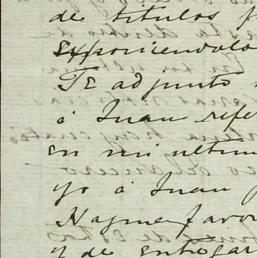 de titulos
exponiendolo
Te adjunto
á Juan refe
en mi ultim
yo á Juan
Hagme favor
y de entregar